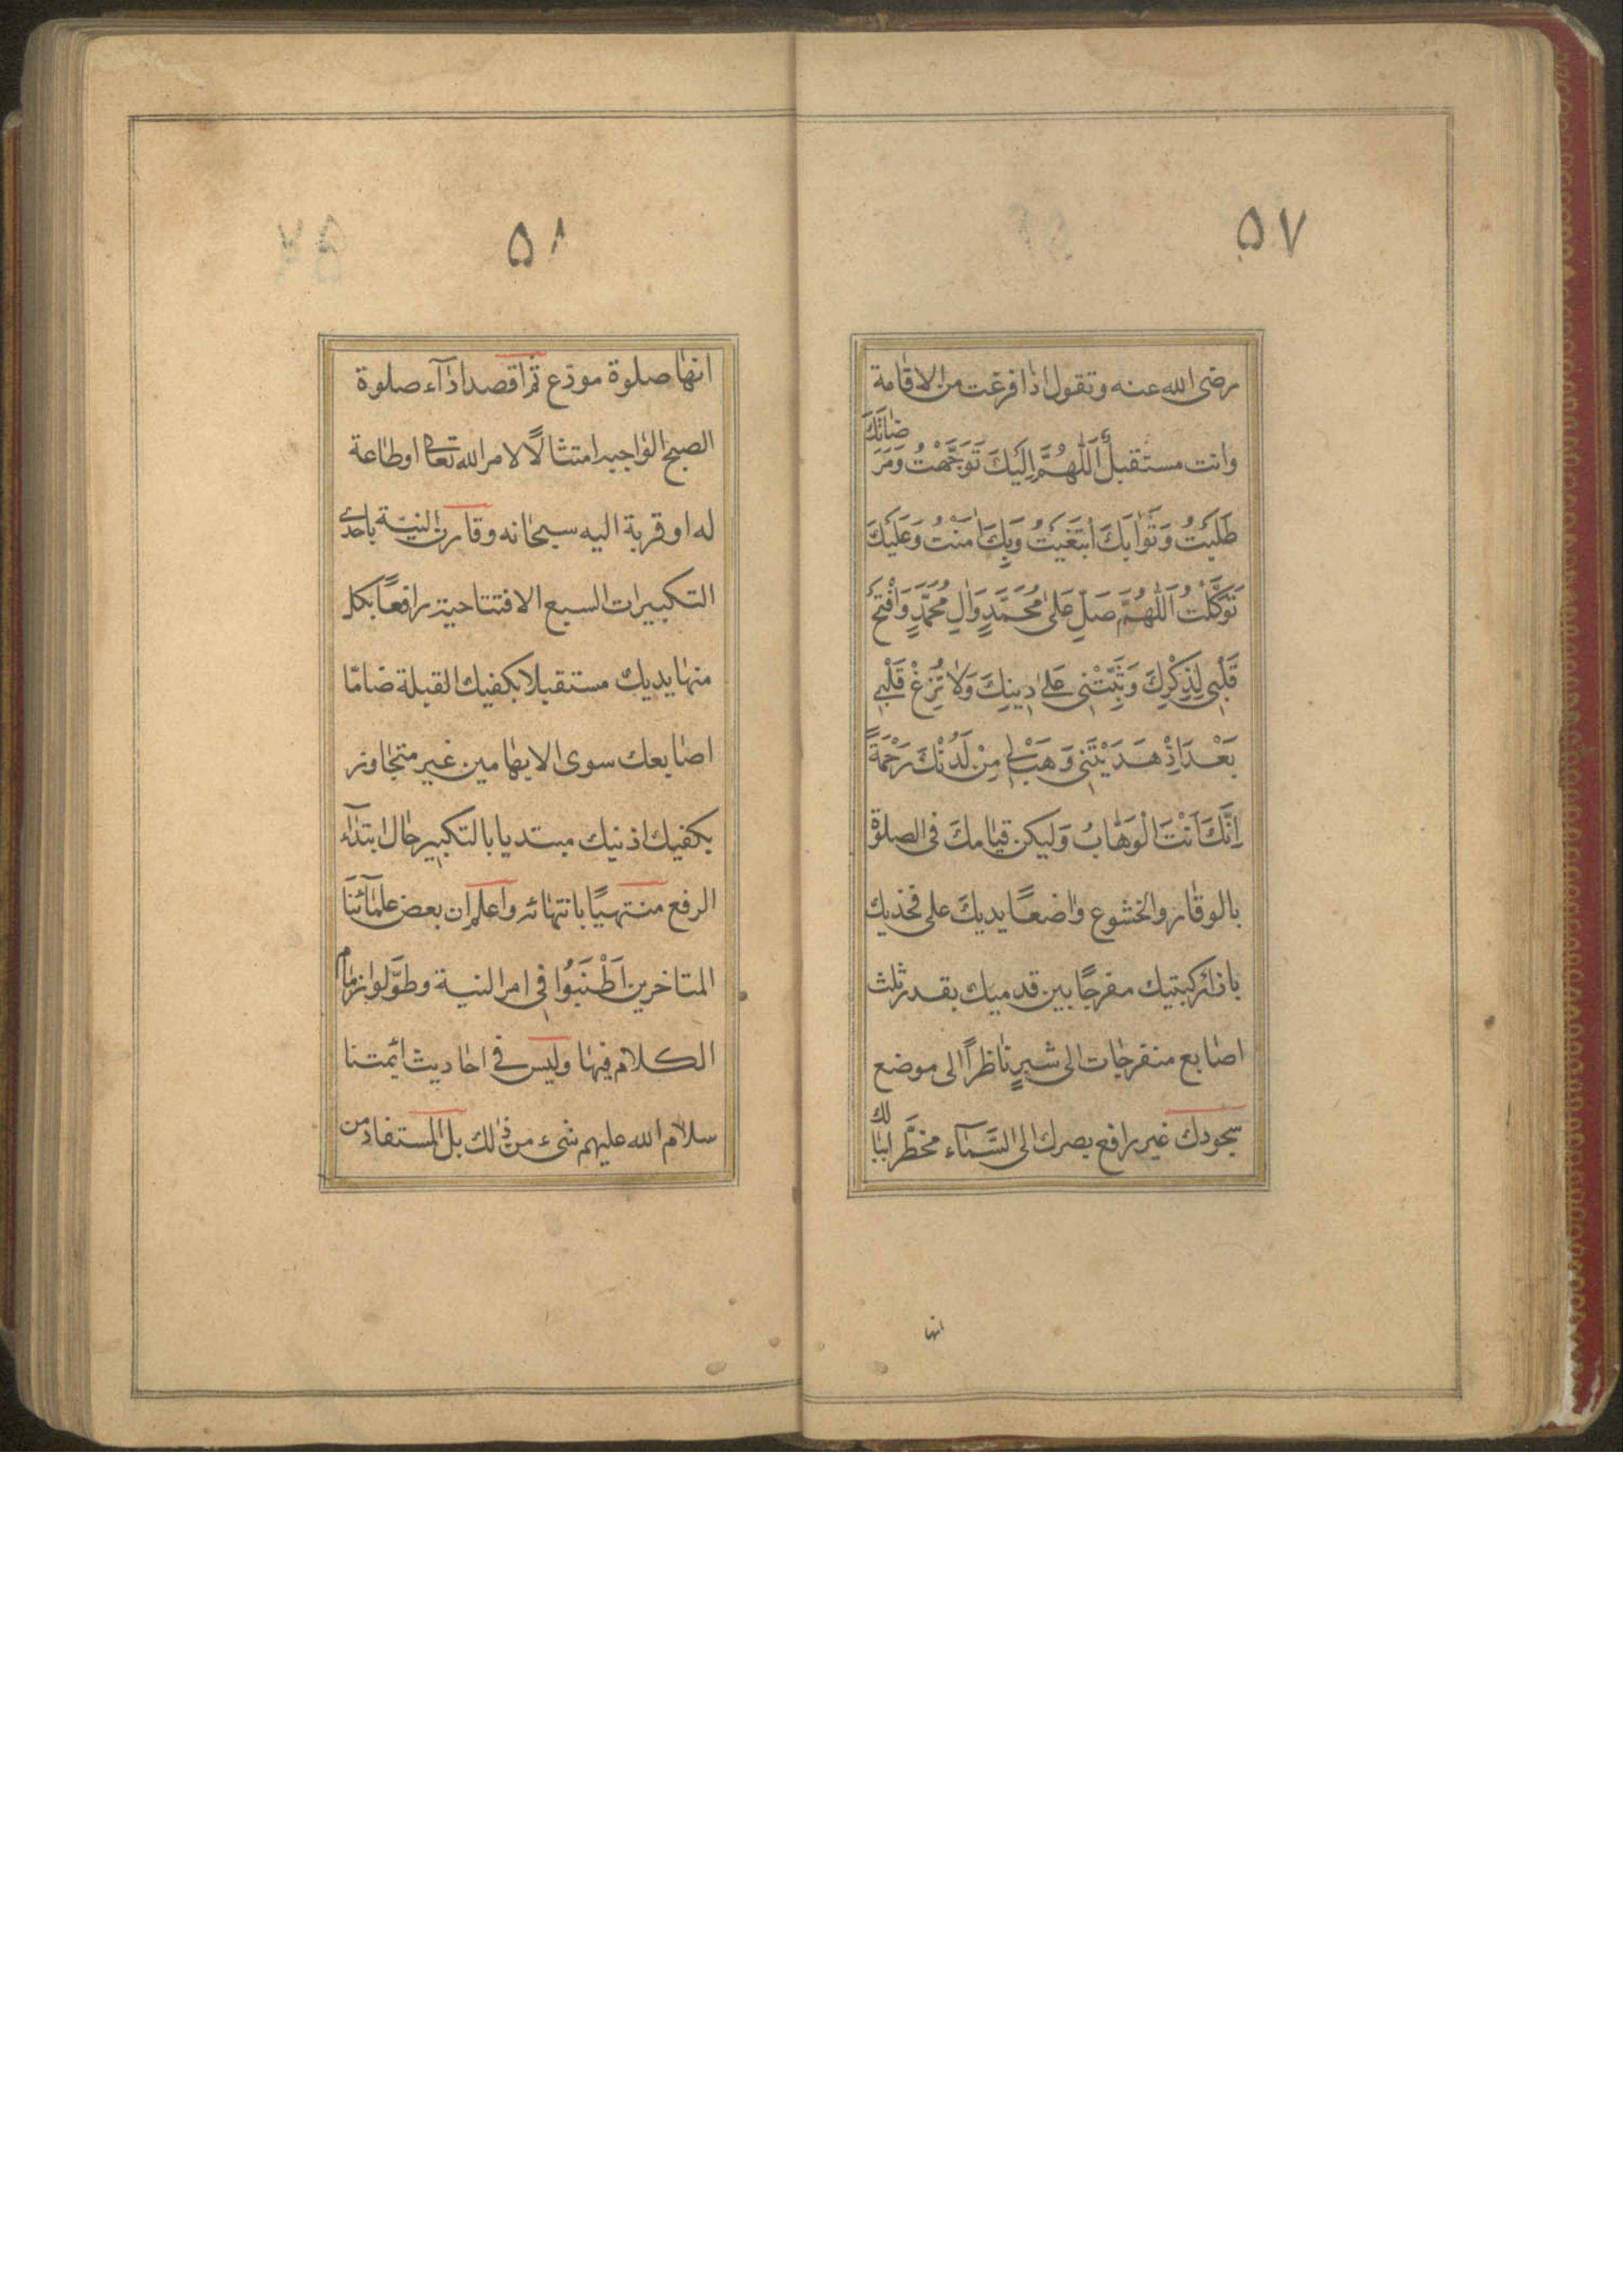 ۵۷
رضى الله عنه وتقول اذا فرغت من الاقامة
وانت مستقبل اَللّٰهُمَّ اِلَيْكَ تَوَجَّهْتُ وَمَرْضَاتَكَ
طَلَبْتُ وَثَوَابَكَ ابْتَغَيْتُ وَبِكَ اٰمَنْتُ وَعَلَيْكَ
تَوَكَّلْتُ اَللّٰهُمَّ صَلِّ عَلىٰ مُحَمَّدٍ وَاٰلِ مُحَمَّدٍ وَافْتَحْ
قَلْبِى لِذِكْرِكَ وَثَبِّتْنِى عَلىٰ دِينِكَ وَلَا تُزِغْ قَلْبِى
بَعْدَ اِذْ هَدَيْتَنِى وَهَبْ لِى مِنْ لَدُنْكَ رَحْمَةً
اِنَّكَ اَنْتَ الْوَهَّابُ وَليكن قيامكَ فى الصلوة
بالوقار والخشوع واضعًا يديكَ على فخذيك
بازاء ركبتيك مفرجًا بين قدميك بقدر ثلث
اصابع منفرجات الى شبرٍ ناظراً الى موضع
سجودك غير رافع بصرك الى السَّمآء مخطّرا ببالك
انها
۵۸
انها صلوة مودّع ثم اقصد ادآء صلوة
الصبح الواجبه امتثالًا لامر الله تعالى او طاعة
له او قربة اليه سبحانه وقارن النيّة باحدى
التكبيرات السبع الافتتاحية رافعًا بكل
منها يديك مستقبلا بكفيك القبلة ضامّا
اصابعك سوى الابهامين غير متجاوز
بكفيك اذنيك مبتديا بالتكبير حال ابتدآء
الرفع منتهيًا بانتهائه واعلم ان بعض علمآئنَا
المتاخرين اَطْنَبُوا فِى امر النية وطوَّلوا زمام
الكلام فيها وليس فى احاديث ائمتنا
سلام الله عليهم شىء من ذلك بل المستفاد من